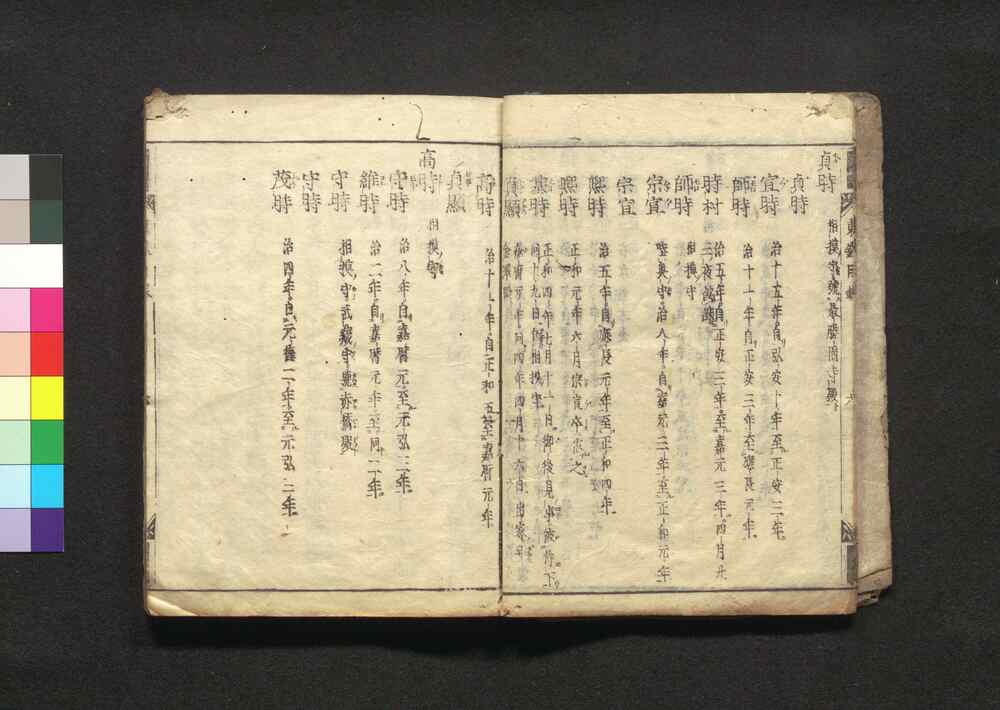 貞時 相摸守 號最勝園寺殿
貞時
宣時 治十五年自弘安十年至正安三年
師時 治十一年自正安三年至應長元年
時村 治五年自正安三年至嘉元三年四月廿
三夜
師時 相摸守
宗宣 陸奥守治八年自嘉元三年至正和元年
宗宣
熈時 治五年自應長元年至正和四年
熈時 正和元年六月宗宣卒
基時 正和四年七月十一日御後見事被
同十九日任相摸守
貞顯 嘉暦元年同四年四月十六日出家
高時 治十一年自正和五至嘉暦元年
貞顯
高時 相摸守
守時 治八年自嘉暦元至元弘三年
維時 治二年自嘉暦元年至同二年
守時 相摸守武藏守號赤橋
守時
茂時 治四年自元德二年至元弘三年